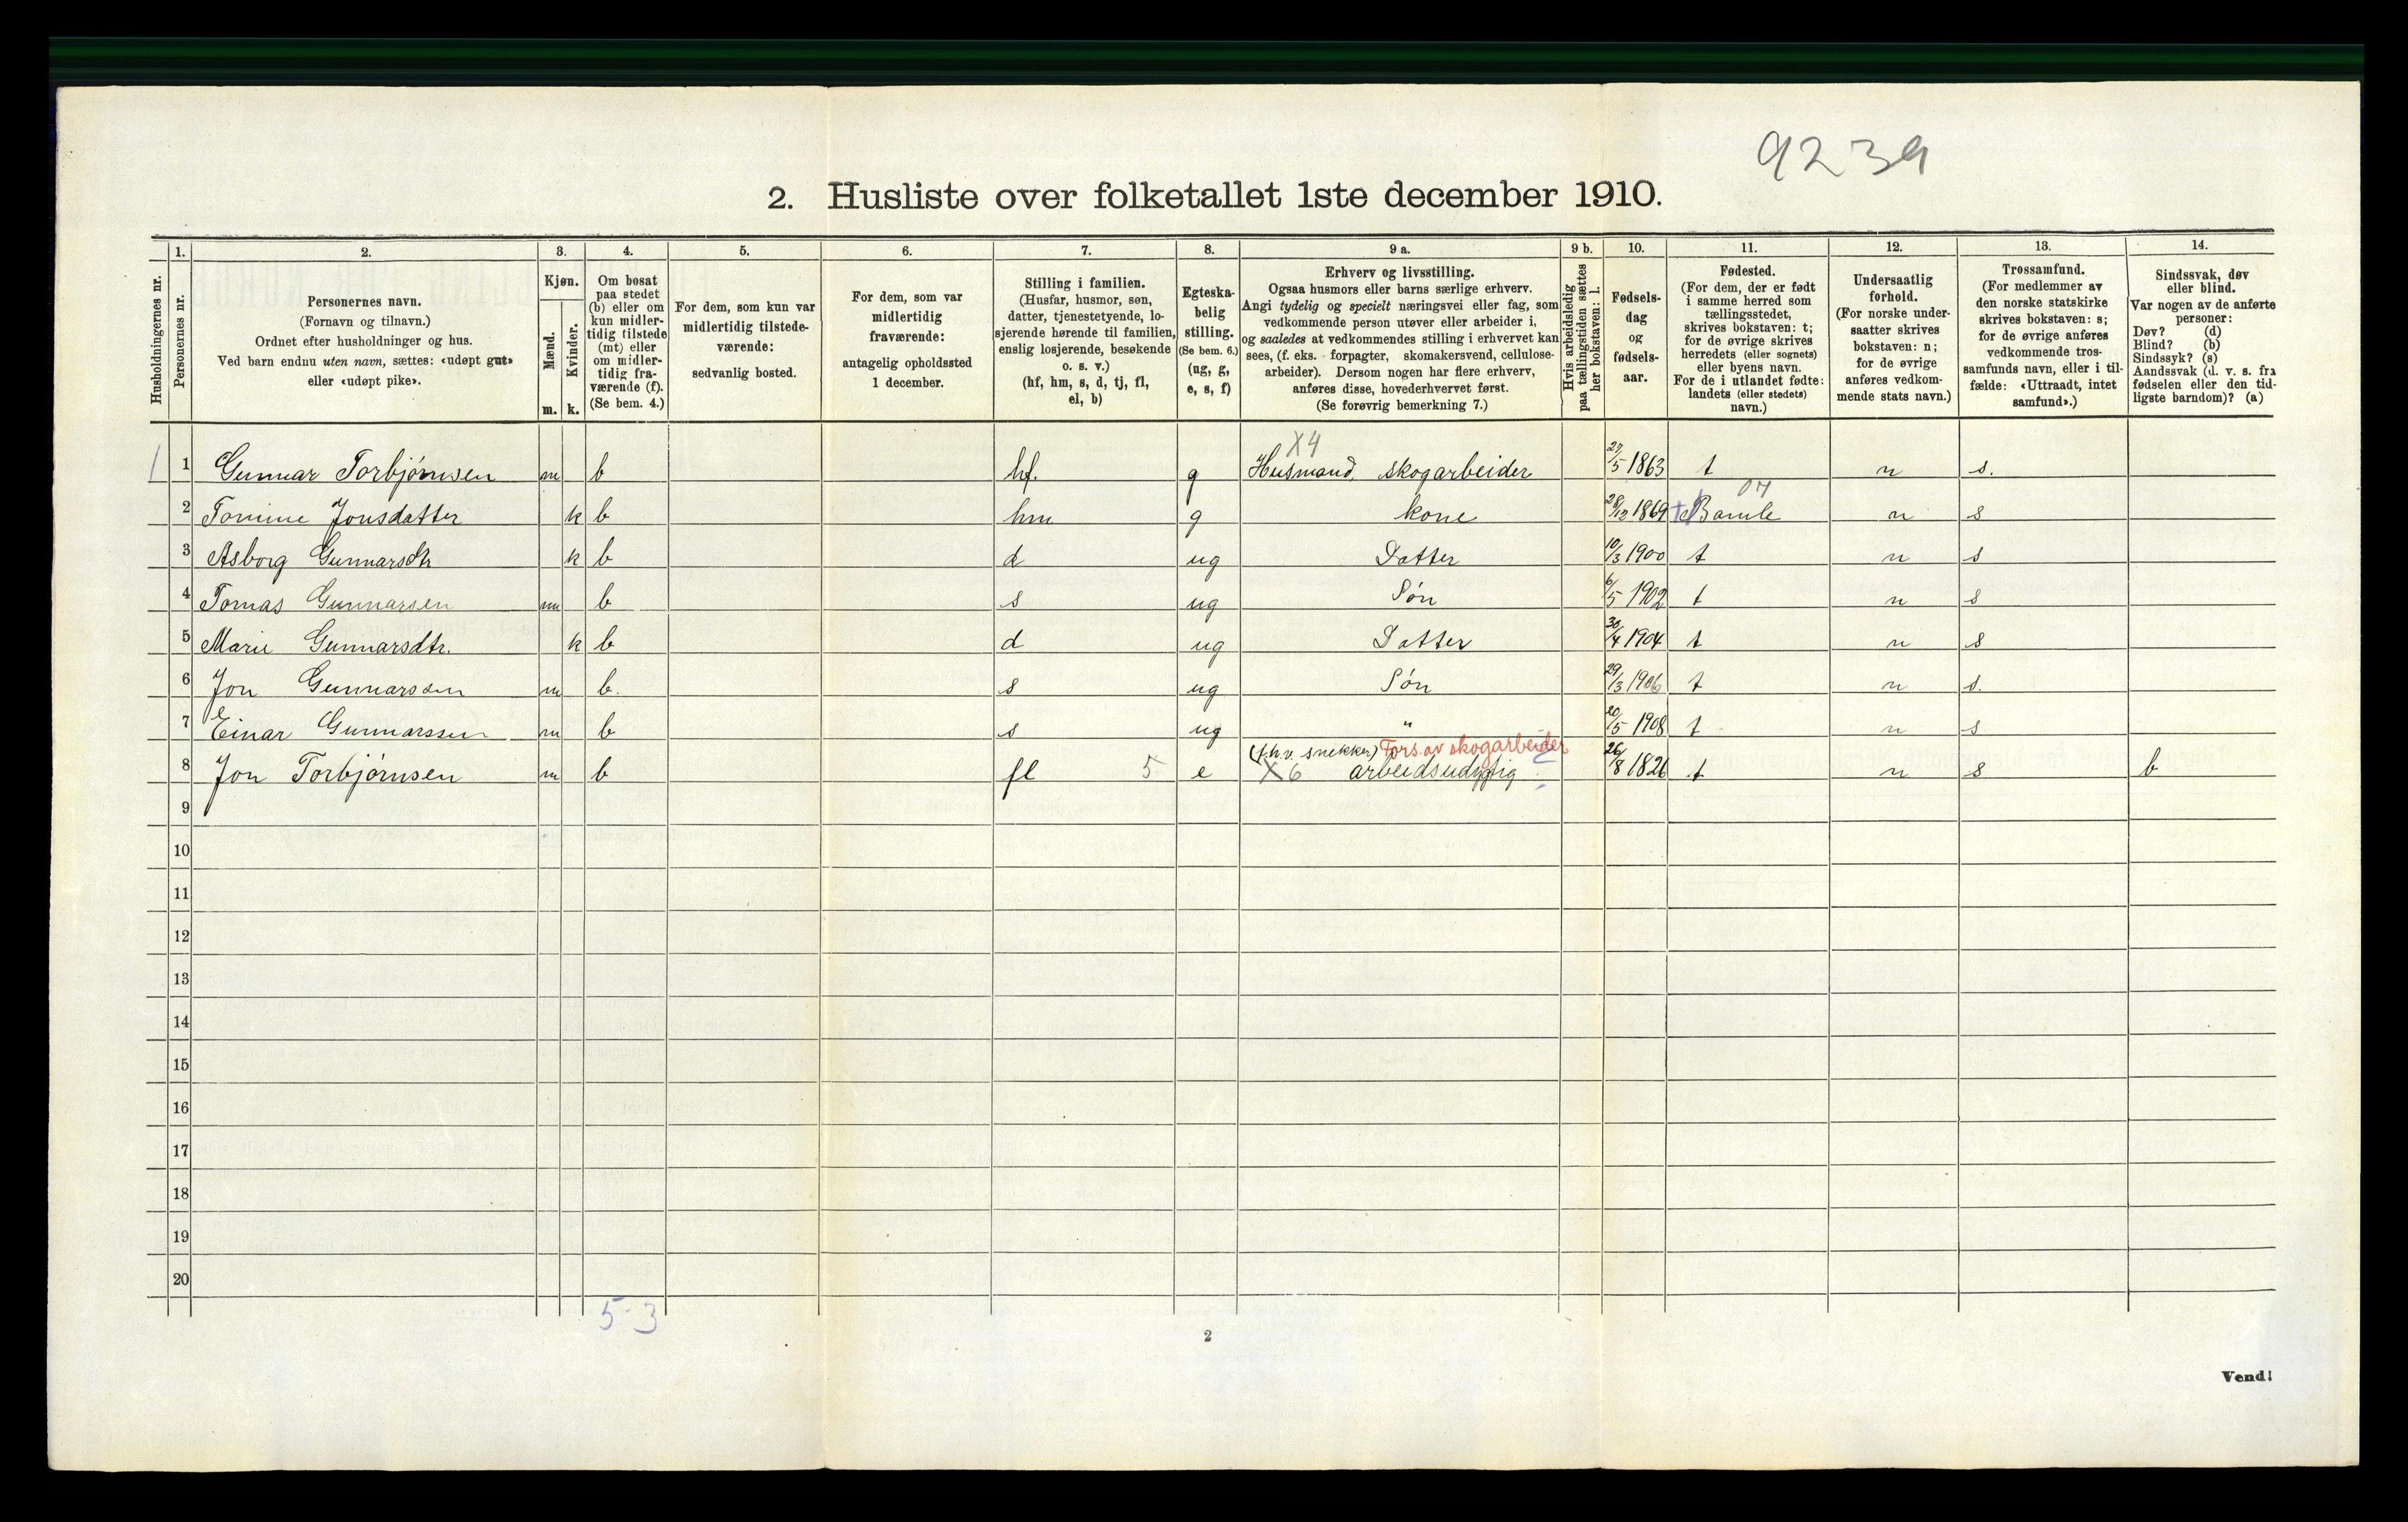 9239
2. Husliste over folketallet 1ste december 1910.
Husholdningernes nr.
1.
Personernes nr.
2.
Personernes navn.
(Fornavn og tilnavn.)
Ordnet efter husholdninger og hus.
Ved barn endnu uten navn, sættes: «udøpt gut»
eller «udøpt pike».
3.
Kjøn.
Mænd.
m.
Kvinder.
k.
4.
Om bosat
paa stedet
(b) eller om
kun midler-
tidig tilstede
(mt) eller
om midler-
tidig fra-
værende (f).
(Se bem. 4.)
5.
For dem, som kun var
midlertidig tilstede-
værende:
sedvanlig bosted.
6.
For dem, som var
midlertidig
fraværende:
antagelig opholdssted
1 december.
7.
Stilling i familien.
(Husfar, husmor, søn,
datter, tjenestetyende, lo-
sjerende hørende til familien,
enslig losjerende, besøkende
o. s. v.)
(hf, hm, s, d, tj, fl,
el, b)
8.
Egteska-
belig
stilling.
(Se bem. 6.)
(ug, g,
e, s, f)
9 a.
Erhverv og livsstilling.
Ogsaa husmors eller barns særlige erhverv.
Angi tydelig og specielt næringsvei eller fag, som
vedkommende person utøver eller arbeider i,
og saaledes at vedkommendes stilling i erhvervet kan
sees, (f. eks. forpagter, skomakersvend, cellulose-
arbeider). Dersom nogen har flere erhverv,
anføres disse, hovederhvervet først.
(Se forøvrig bemerkning 7.)
9 b.
Hvis arbeidsledig
paa tællingstiden sættes
her bokstaven: l.
10.
Fødsels-
dag
og
fødsels-
aar.
11.
Fødested.
(For dem, der er født
i samme herred som
tællingsstedet,
skrives bokstaven: t;
for de øvrige skrives
herredets (eller sognets)
eller byens navn.
For de i utlandet fødte:
landets (eller stedets)
navn.)
12.
Undersaatlig
forhold.
(For norske under-
saatter skrives
bokstaven: n;
for de øvrige
anføres vedkom-
mende stats navn.)
13.
Trossamfund.
(For medlemmer av
den norske statskirke
skrives bokstaven: s;
for de øvrige anføres
vedkommende tros-
samfunds navn, eller i til-
fælde: «Uttraadt, intet
samfund».)
14.
Sindssvak, døv
eller blind.
Var nogen av de anførte
personer:
Døv? (d)
Blind? (b)
Sindssyk? (s)
Aandssvak (d. v. s. fra
fødselen eller den tid-
ligste barndom)? (a)
X4
1 1 Gunnar Torbjørnsen m b hf. g Husmand, skogarbeider 27/5 1863 t n s.
07
2 Tomine Jonsdatter k b hm g kone 28/12 1869 Bamle n s
3 Asborg Gunnarsdtr k b d ug Datter 10/3 1900 t n s
4 Tomas Gunnarsen m b s ug Søn 6/5 1902 t n s
5 Marie Gunnarsdtr. k b d ug Datter 30/4 1904 t n s
6 Jon Gunnarssen m b. s ug Søn 29/3 1906 t n s.
7 Einar Gunnarssen m b s ug " 20/5 1908 t n s
(f.h.v. snekker) Fors. av skogarbeider
8 Jon Torbjørnsen m b fl 5 e X6 arbeidsudygtig 26/8 1826 t n s b
9
10
11
12
13
14
15
16
17
18
19
20
5-3
2
Vend!